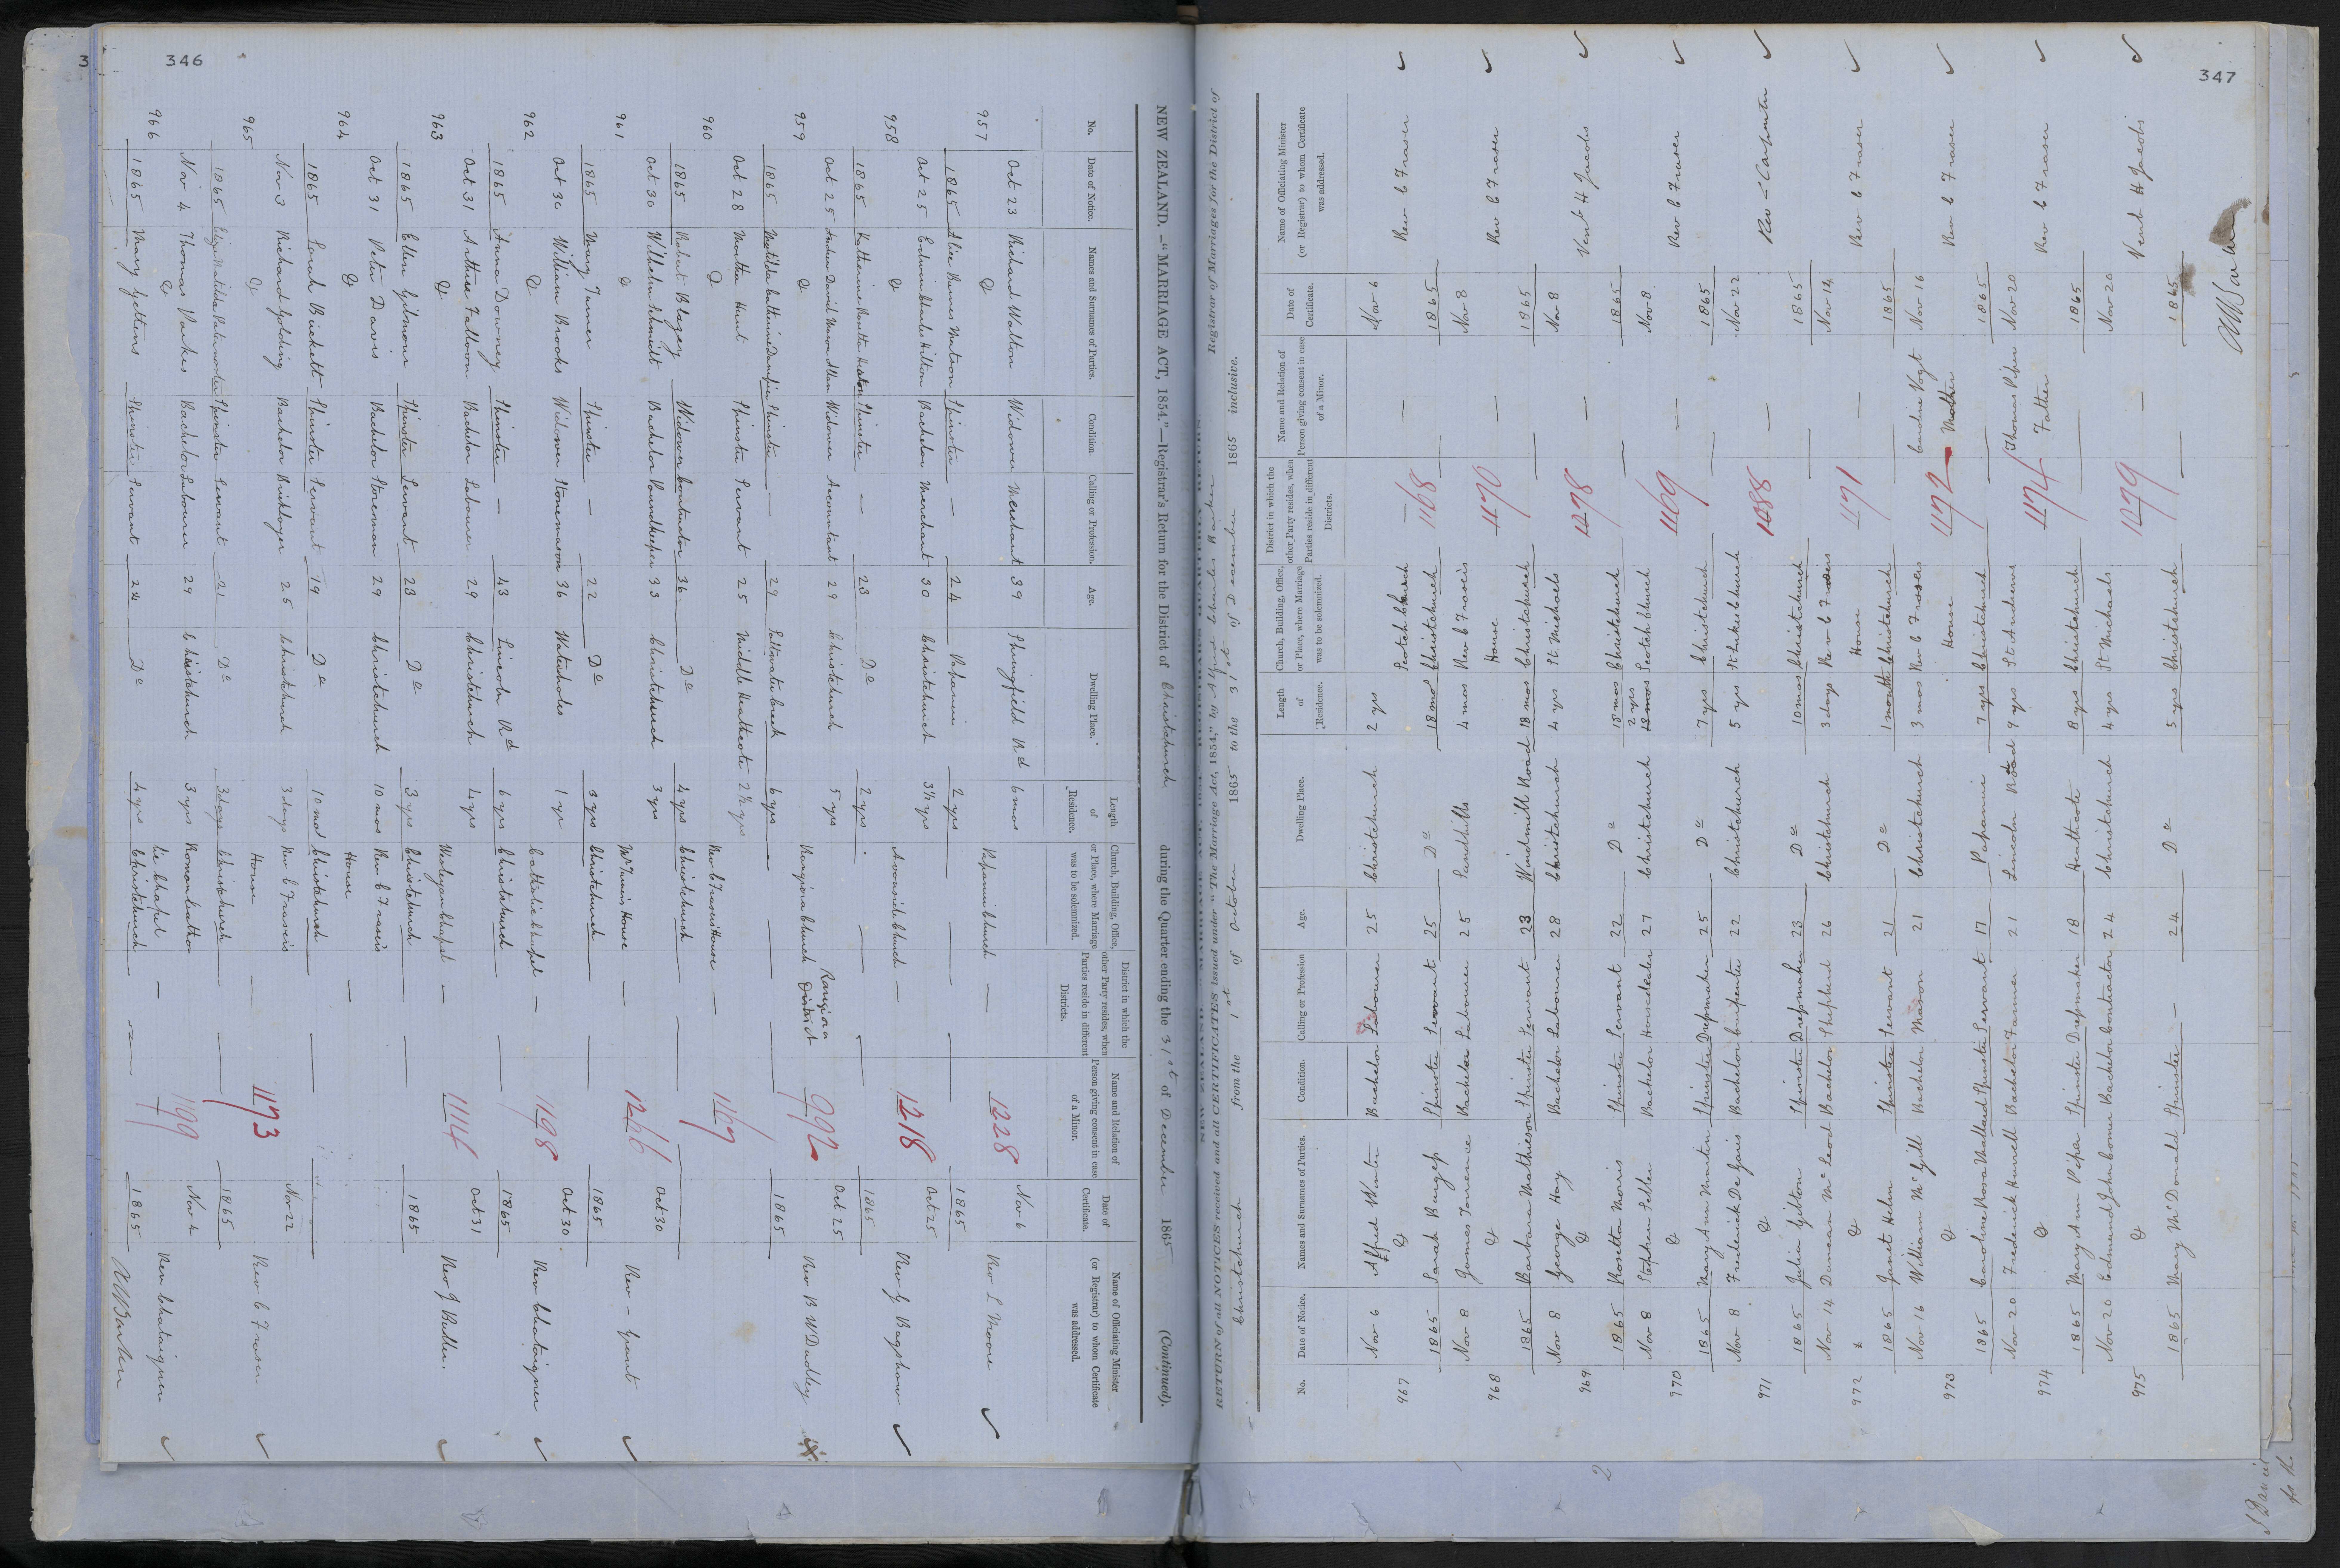 346
NEW ZEALAND.—"MARRIAGE ACT, 1854."—Registrar's Return for the District of Christchurch during the Quarter ending the 31st of December 1865 (Continued).
No. Date of Notice. Names and Surnames of Parties. Condition. Calling or Profession. Age. Dwelling Place. Length of Residence. Church, Building, Office, or Place, where Marriage was to be solemnized. District in which the other Party resides, when Parties reside in different Districts. Name and Relation of Person giving consent in case of a Minor. Date of Certificate. Name of Officiating Minister (or Registrar) to whom Certificate was addressed.
Oct 23 Richard Walton Widower Merchant 39 Springfield Rd 6 mos Nov 6
957 & Papanui Church — 1228 Rev L Moore
1865 Alice Barnes Watson Spinster — 24 Papanui 2 yrs 1865
Oct 25 Edwin Charles Hilton Bachelor Merchant 30 Christchurch 3½ yrs Oct 25
958 & Avonside Church — 1218 Rev G Bagshaw
1865 Katherine Spinster — 23 Do 2 yrs 1865
Oct 25 Andrew David Allan Widower Accountant 29 Christchurch 5 yrs Oct 25
959 & Rangiora Church Rangiora District 992 Rev B W Dudley
1865 Matilda Catherine Spinster — 29 6 yrs 1865
Oct 28 Martha Hunt Spinster Servant 25 Middle Heathcote 2½ yrs
960 & Rev C Frasers House — 1167
1865 Robert Blazey Widower Contractor 36 Do 4 yrs Christchurch
Oct 30 Wilhelm Schmidt Bachelor 33 Christchurch 3 yrs Oct 30
961 & House — 1266 Rev – Grant
1865 Mary Turner Spinster — 22 Do 3 yrs Christchurch 1865
Oct 30 William Brooks Widower Stonemason 36 Waterholes 1 yr Oct 30
962 & Catholic Chapel — 1198 Rev Chataigner
1865 Anna Downey Spinster — 43 Lincoln Rd 6 yrs Christchurch 1865
Oct 31 Arthur Falloon Bachelor Labourer 29 Christchurch 4 yrs Oct 31
963 & Wesleyan Chapel — 1114 Rev J Buller.
1865 Ellen Gilmour Spinster Servant 23 Do 3 yrs Christchurch 1865
Oct 31 Peter Davis Bachelor Storeman 29 Christchurch 10 mos Rev C Frasers
964 & House —
1865 Sarah Birkett Spinster Servant 19 Do 10 mos Christchurch
Nov 3 Richard Golding Bachelor Bricklayer 25 Christchurch 3 days Rev C Frasers Nov 22
965 & House — 1173 Rev C Fraser
1865 Eliza Matilda Spinster Servant 21 Do 3 days Christchurch 1865
Nov 4 Thomas Parkes Bachelor Labourer 29 Christchurch 3 yrs Roman Catho Nov 4
966 & lic Chapel — 1199 Rev Chataigner
1865 Mary Gettens Spinster Servant 24 Do 4 yrs Christchurch 1865
347
RETURN of all NOTICES received and all CERTIFICATES issued under "The Marriage Act, 1854," by Alfred Charles Barker Registrar of Marriages for the District of
Christchurch from the 1st of October 1865 to the 31st of December 1865 inclusive.
No. Date of Notice. Names and Surnames of Parties. Condition. Calling or Profession Age. Dwelling Place. Length of Residence. Church, Building, Office, or Place, where Marriage was to be solemnized. District in which the other Party resides, when Parties reside in different Districts. Name and Relation of Person giving consent in case of a Minor. Date of Certificate. Name of Officiating Minister (or Registrar) to whom Certificate was addressed.
Nov 6 Alfred Winter Bachelor Labourer 25 Christchurch 2 yrs Nov 6
967 & Scotch Church — 1168 — Rev C Fraser
1865 Sarah Burgess Spinster Servant 25 Do 18 mos Christchurch 1865
Nov 8 James Torrence Bachelor Labourer 25 Sandhills 4 mos Rev C Frasers Nov 8
968 & House 1170 — Rev C Fraser
1865 Barbara Mathieson Spinster Servant 23 Windmill Road 18 mos Christchurch 1865
Nov 8 George Hay Bachelor Labourer 28 Christchurch 4 yrs St Michaels Nov 8
969 & 1078 — Venl H Jacobs
1865 Rosetta Morris Spinster Servant 22 Do 18 mos Christchurch 1865
Nov 8 Stephen Bachelor Horsedealer 27 Christchurch 2 yrs 18 mos Scotch Church Nov 8
970 & 1169 — Rev C Fraser
1865 Mary Ann Martin Spinster Dressmaker 25 Do 7 yrs Christchurch 1865
Nov 8 Frederick De Bachelor Carpenter 22 Christchurch 5 yrs St Lukes Church Nov 22
971 & 1088 — Rev – Carpenter
1865 Julia Gibton Spinster Dressmaker 23 Do 10 mos Christchurch 1865
Nov 14 Duncan McLeod Bachelor Shepherd 26 Christchurch 3 days Rev C Frasers Nov 14
972 & House 1171 — Rev C Fraser
1865 Janet Helm Spinster Servant 21 Do 1 month Christchurch 1865
Nov 16 William McGill Bachelor Mason 21 Christchurch 3 mos Rev C Frasers Caroline Vogt Nov 16
973 & House 1172 Mother Rev C Fraser
1865 Caroline Rosa Spinster Servant 17 Papanui 7 yrs Christchurch 1865
Nov 20 Frederick Bachelor Farmer 21 Lincoln Road 9 yrs St Andrews Thomas Piper Nov 20
974 & 1174 Father Rev C Fraser
1865 Mary Ann Piper Spinster Dressmaker 18 Heathcote 8 yrs Christchurch 1865
Nov 20 Edmund John Bachelor Contractor 24 Christchurch 4 yrs St Michaels Nov 20
975 & 1079 — Venl H Jacobs
1865 Mary McDonald Spinster — 24 Do 5 yrs Christchurch 1865